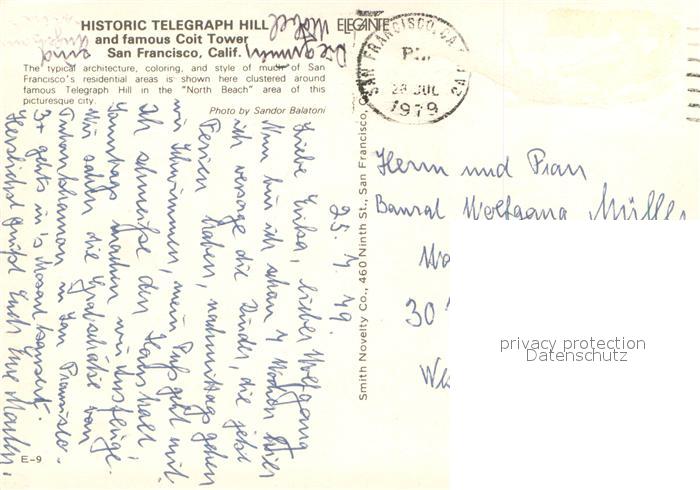 HISTORIC TELEGRAPH HILL
and famous Coit Tower
San Francisco, Calif.
The typical architecture, coloring, and style of much of San
Francisco's residential areas is shown here clustered around
famous Telegraph Hill in the "North Beach" area of this
picturesque city.
Photo by Sandor Balatoni
ELEGANTE
SAN FRANCISCO, CA
PM
28 JUL
1979
Smith Novelty Co., 460 Ninth St., San Francisco,
25. 7. 79.
Liebe Erika, lieber Wolfgang
Nun bin ich schon 4 Wochen hier
ich versorge die Kinder, die jetzt
Ferien haben, nachmittags gehen
wir schwimmen, mein Fuß geht mit.
Ich schmeiße den Haushalt
machen wir Ausflüge.
Wir sahen die Grabschätze von
Tutanchamon in San Francisco.
geht's in's Mozartkonzert.
Herzlichst grüßt Euch Eure
Herrn und Frau
Baurat Wolfgang Müller
30
privacy protection
Datenschutz
E-9